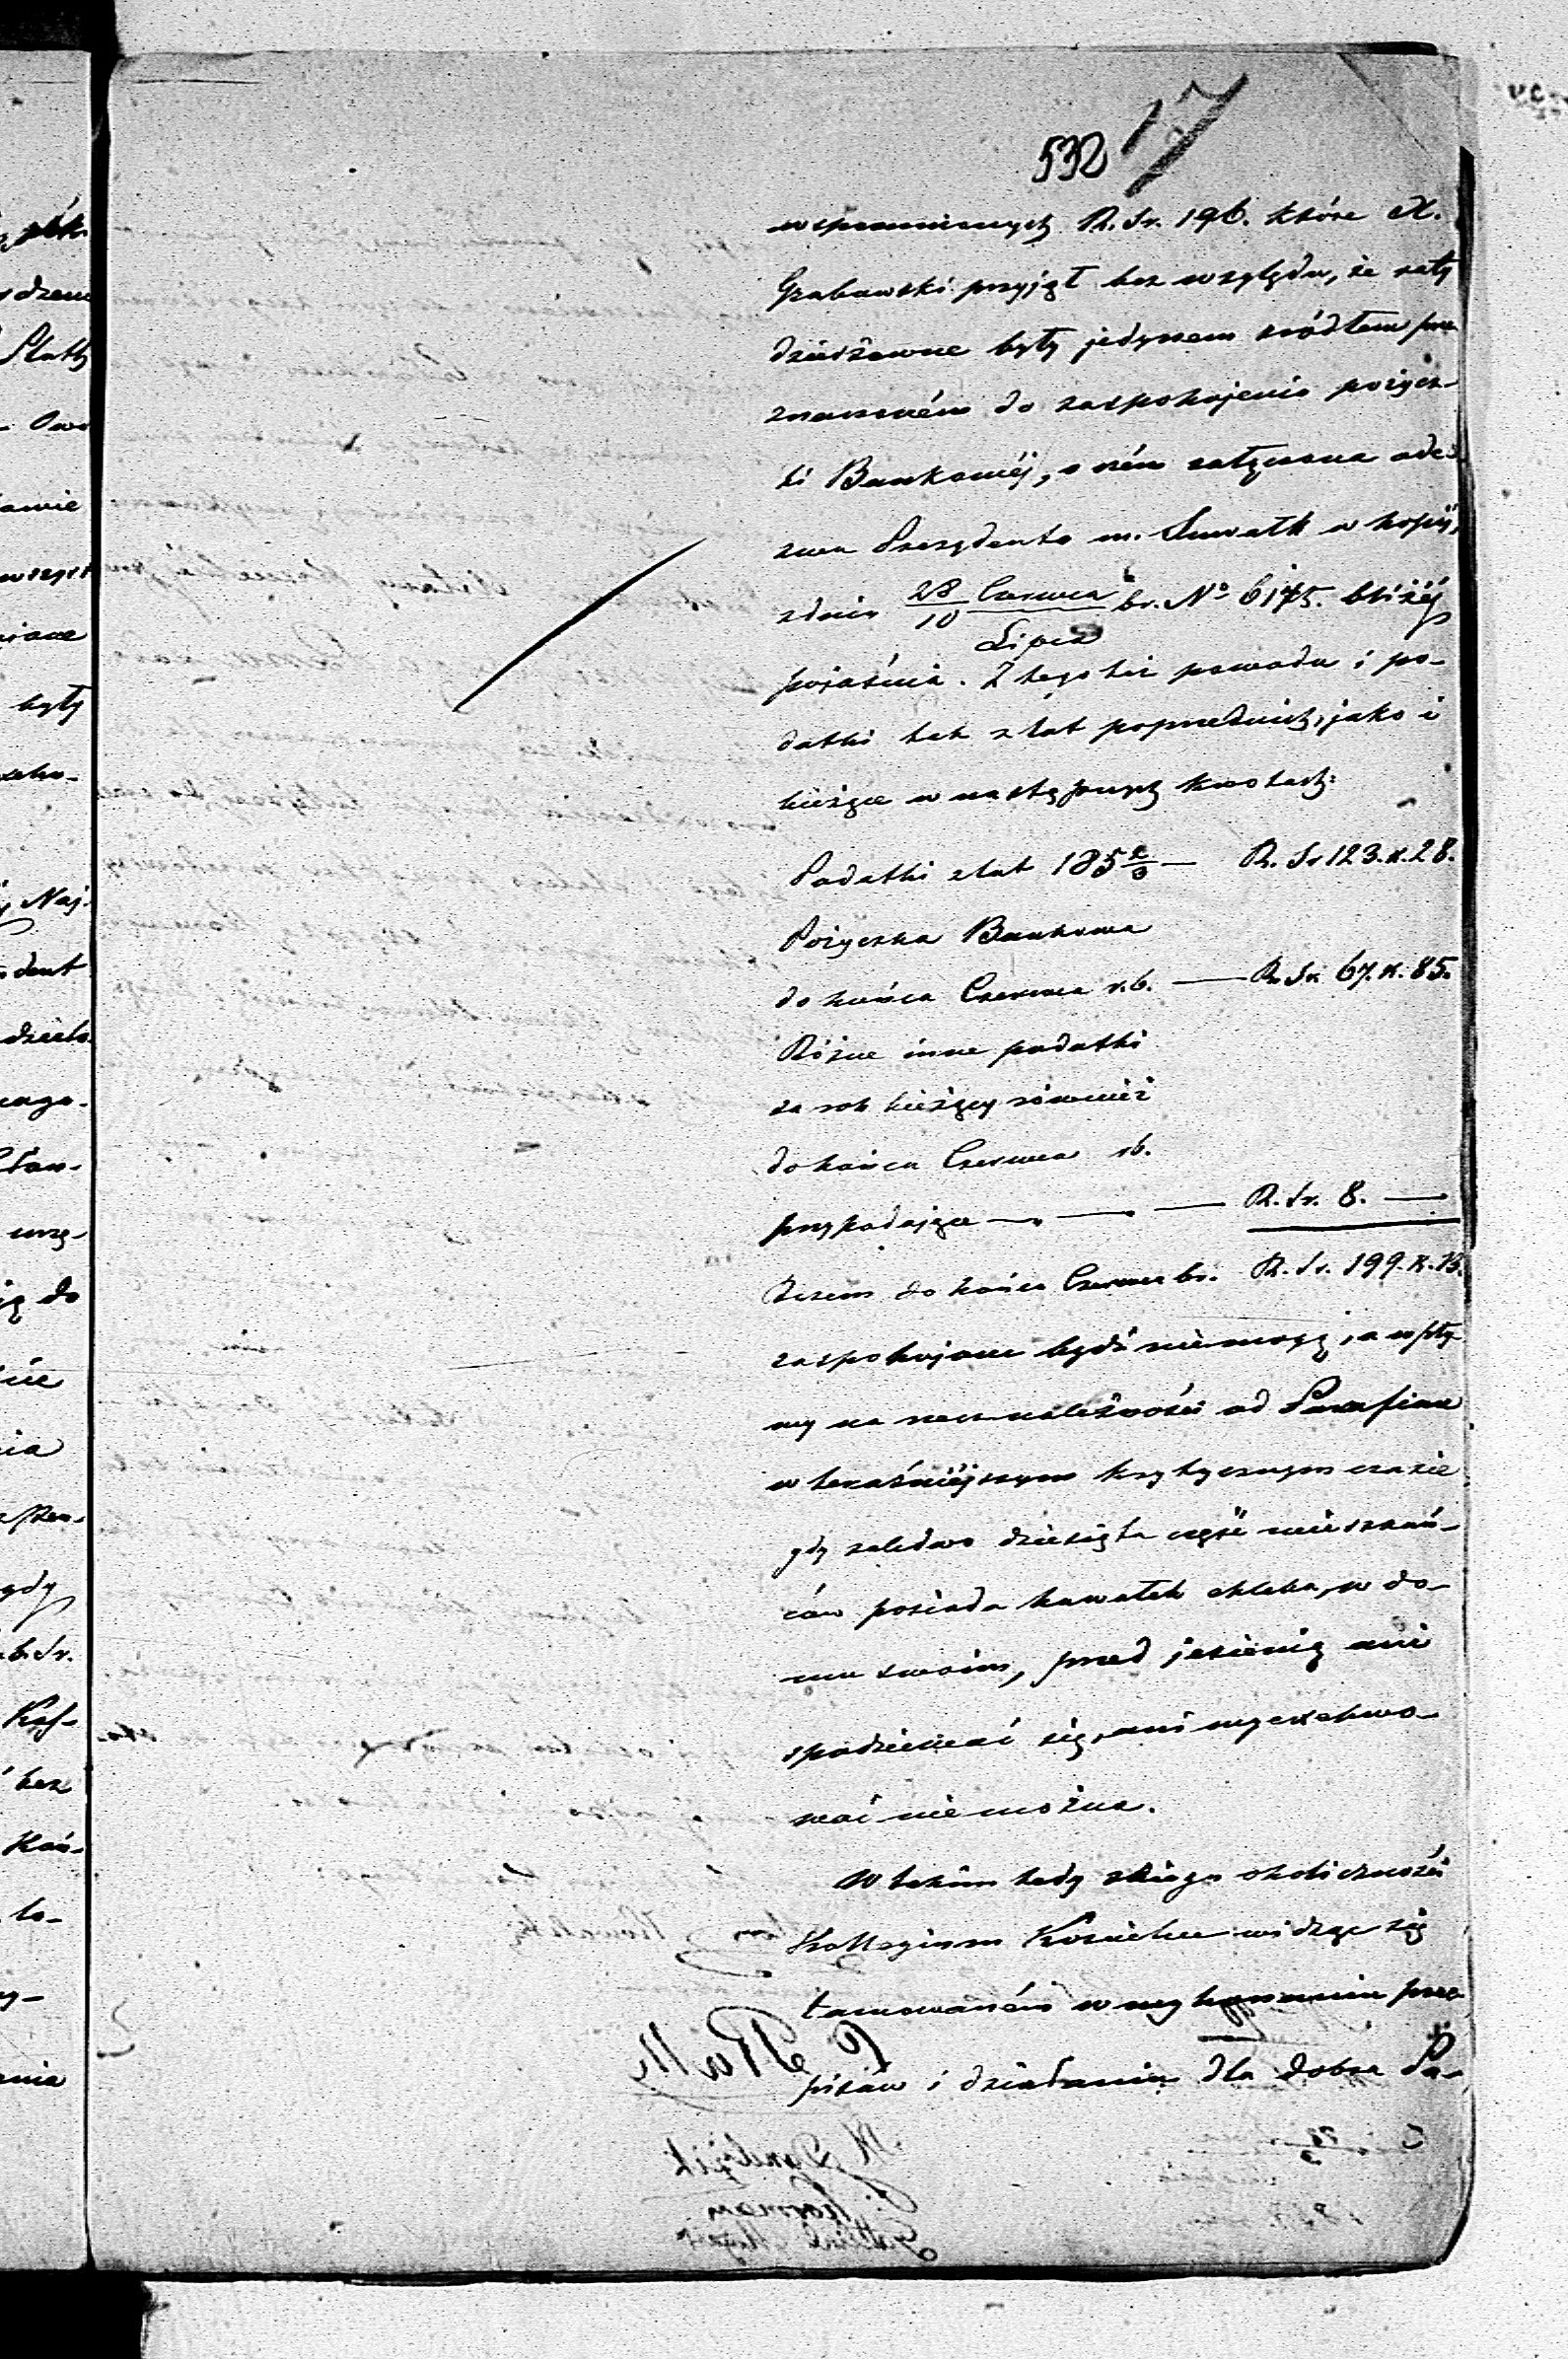 532 17
wspomnionych R. Sr. 196. które X.
Grabowski przyjął bez względu, że raty
dzierżawne były jedynem zródłem prze
znaczoném do zaspokojenia pożycz-
ki Bankowéj, o czém załączona ode-
zwa Prezydenta m. Suwałk w kopij,
z dnia 28/10 Czerwca/Lipca br. No 6175. bliżéj
pojaśnia. Z tego też powodu i po-
datki tak z lat poprzednich, jako i
bieżące w następnych kwotach:
Podatki z lat 185 2/3 — R. Sr 123. k. 28.
Pożyczka Bankowa
do końca Czerwca r. b. — R. Sr. 67. k. 85.
Różne inne podatki
za rok bieżący również
do końca Czerwca rb.
przypadające — — — R. Sr. 8. —
Razem do końca Czerwca br. R. Sr. 199. k. 13.
zaspokojone bydź niemogą, a wpły-
wy na rzecz należności od Parafian
w teraźniéjszym krytycznym czasie
gdy zaledwo dziesiąta część mieszkań-
ców posiada kawałek chleba, w do-
mu swoim, przed jesienią ani
spodziewać się, ani wyexekwo-
wać nie można.
W takim tedy zbiegu okoliczności
Kollegium Kościelne widząc się
tamowaném w wykonaniu prze
pisów i działaniu dla dobra Pa-
dzem
Platz
Owo
awie
były
Naj-
dent
urzę-
do
nia
gdy
b. Sr.
bez
Koś-
to-